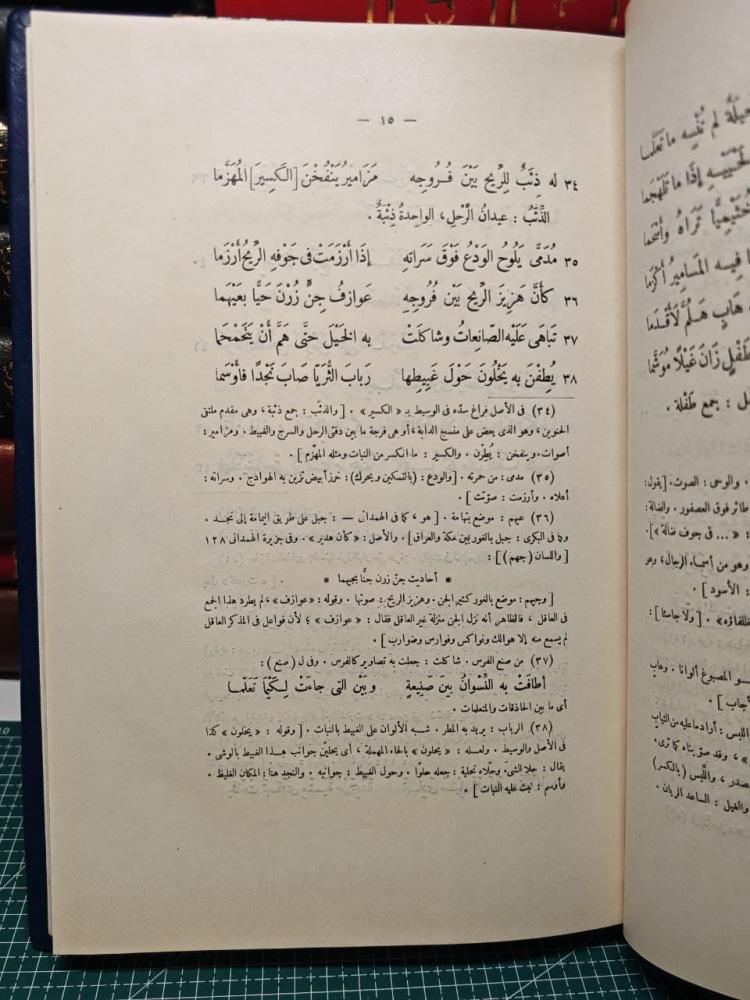 — ١٥ —
٣٤ له ذِئَبٌ للِرِيحِ بَيْنَ فُـرُوجِه مَزَامِيرُ يَنْفُخْنَ [الكَسِيرَ] المُهَزَّما
الذِّئَبُ : عيدانُ الرَّحْلِ، الواحِدةُ ذِئْبَةٌ .
٣٥ مُدَمًّى يَلُوحُ الوَدْعُ فَوْقَ سَرَاتِه إذَا أَرْزَمَتْ فى جَوْفِهِ الرِّيحُ أَرْزَما
٣٦ كأَنَّ هَزِيزَ الرِّيحِ بَيْن فُرُوجِهِ عَوازِفُ جِنٍّ زُرْنَ حَيًّا بعَيْهَما
٣٧ تَبَاهَى عَلَيْه الصّانِعاتُ وشاكَلَتْ به الخَيْلَ حتَّى هَمَّ أَنْ يَتَحَمْحَما
٣٨ يُطِفْنَ به يَحْلُونَ حَوْلَ غَبِيطِها رَبابَ الثُّرَيّا صَابَ نَجْدًا فأَوْسَما
(٣٤) فى الأصل فراغ سدّه فى الوسيط بـ « الكسير » . [ والذئب : جمع ذئبة ، وهى مقدم ملتقى
الحنوين ، وهو الذى يعض على منسج الدابة ، أو هى فرجة ما بين دفتى الرحل والسرج والغبيط . ومزامير :
أصوات . وينفخن : يُطرن . والكسير : ما انكسر من النبات ومثله المهزم ] .
(٣٥) مدمى : من حمرته . [ والودع : ( بالتسكين ويحرك ) : خرز أبيض تزين به الهوادج . وسراته :
أعلاه . وأرزمت : صوّتت ] .
(٣٦) عيهم : موضع بتهامة . [ هو ، كما فى الهمدانى — : جبل على طريق اليمامة إلى نجد .
وما فى البكرى : جبل بالغور بين مكة والعراق ] . والأصل : « كأن هدير » . وفى جزيرة الهمدانى ١٢٨
[ واللسان (جهم) ] :
* أحاديث جنّ زرن جنًّا بجيهما *
[ وجيهم : موضع بالغور كثير الجن . وهزيز الريح : صوتها . وقوله : « عوازف » ، لم يطرد هذا الجمع
فى العاقل ، فالظاهر أنه نزل الجن منزلة غير العاقل فقال : « عوازف » ؛ لأن فواعل فى المذكر العاقل
لم يسمع منه إلا هوالك ونواكس وفوارس وضوارب ] .
(٣٧) من صنع الفرس . شاكلت : جعلت به تصاوير كالفرس . وفى ل ( صنع ) :
أطافَتْ به النِّسْوانُ بينَ صَنِيعةٍ وبَيْن التى جاءَتْ لِكَيْما تَعَلَّما
أى ما بين الحاذقات والمتعلمات .
(٣٨) الرباب : يريد به المطر . شبه الألوان على الغبيط بالنبات . [ وقوله : « يخلون » كذا
فى الأصل والوسيط . ولعله : « يحلون » بالحاء المهملة ، أى يحلين جوانب هذا الغبيط بالوشى .
يقال : حلا الشئ وحلّاه تحلية : جعله حلوًا . وحول الغبيط : جوانبه . والنجد هنا : المكان الغليظ .
وأوسم : نبت عليه النبات ] .
لم تُنْسِه ما تَعَلَّما
إذَا ما
تَراهُ
فيه المَسَامِيرُ أكْزَما
هَابٍ هَلُمَّ لأَقْدَما
زَانَ غَيْلًا مُوَشَّما
: جمع طَفْلة .
. والوحى : الصوت . [ يقول :
طائر فوق العصفور . والضالة :
: « ... فى جوف ضالة » ] .
وهو من أسماء الرجال ، وهو
: الأسود ] .
[ ولا جاسئًا ] :
المصبوغ ألوانا . وهاب
اللبس : أراد ما عليه من الثياب
كما ترى .
والِّلبس ( بالكسر )
والغيل : الساعد الريان .